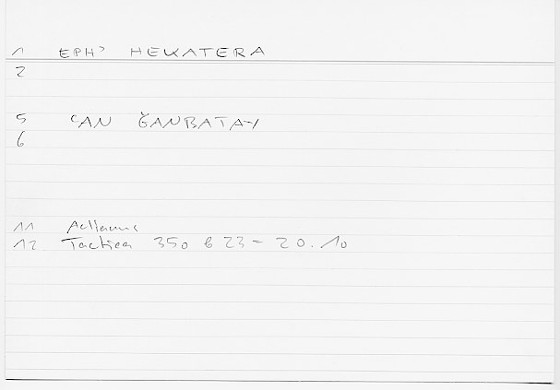 1 EPH> HEKATERA
2
5 ČAN ǦANBATAY
6
11 Aelianus
12 Tactica 350 b 23 - 20.10